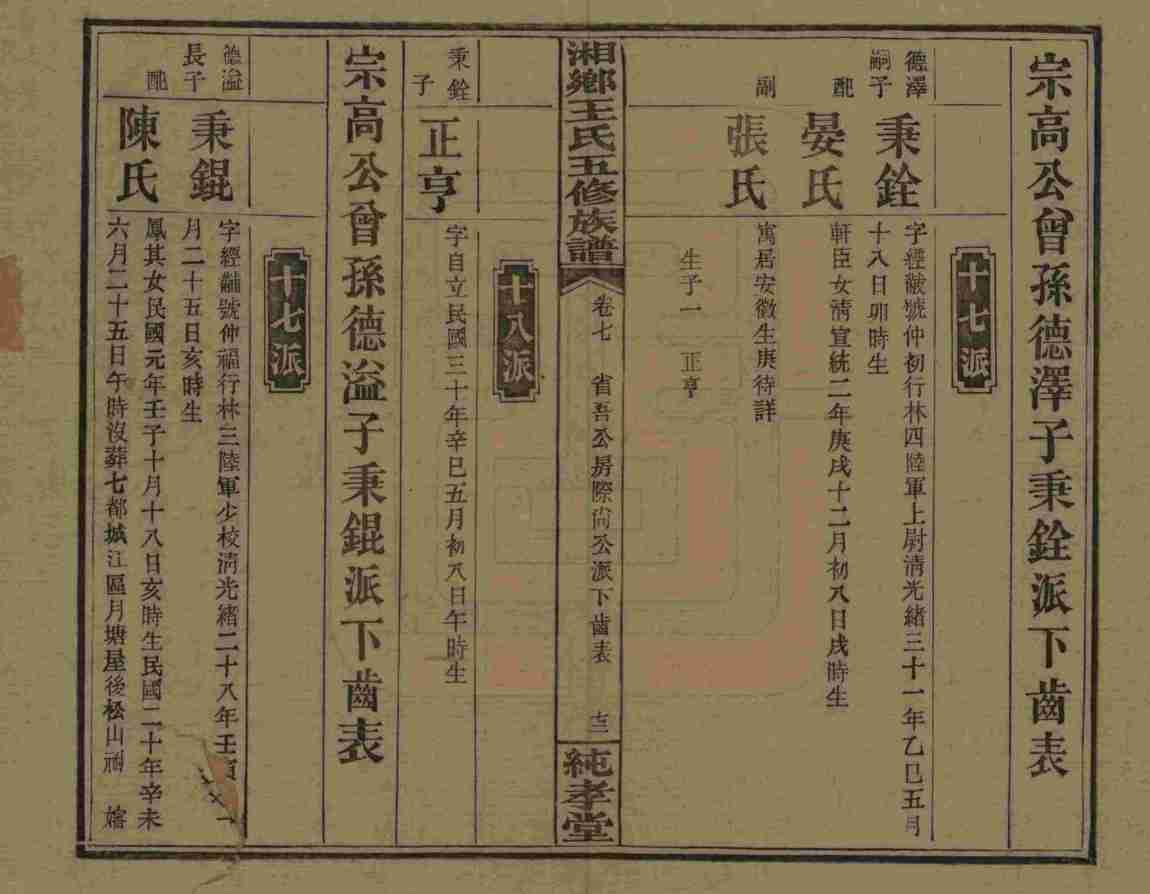 宗高公曾孫德澤子秉銓派下齒表
十七派
德澤
嗣子
秉銓
字經黻號仲初行林四陸軍上尉清光緒三十一年乙巳五月
十八日卯時生
配
晏氏
軒臣女清宣統二年庚戌十二月初八日戌時生
副
張氏
寓居安徽生庚待詳
生子一 正亨
湘鄉王氏五修族譜
卷七 省吾公房際尚公派下齒表 十三
純孝堂
十八派
秉銓
子
正亨
字自立民國三十年辛巳五月初八日午時生
宗高公曾孫德溢子秉錕派下齒表
十七派
德溢
長子
秉錕
字經黼號仲福行林三陸軍少校清光緒二十八年壬寅
月二十五日亥時生
配
陳氏
鳳其女民國元年壬子十月十八日亥時生民國二十年辛未
六月二十五日午時沒葬七都城江區月塘屋後松山